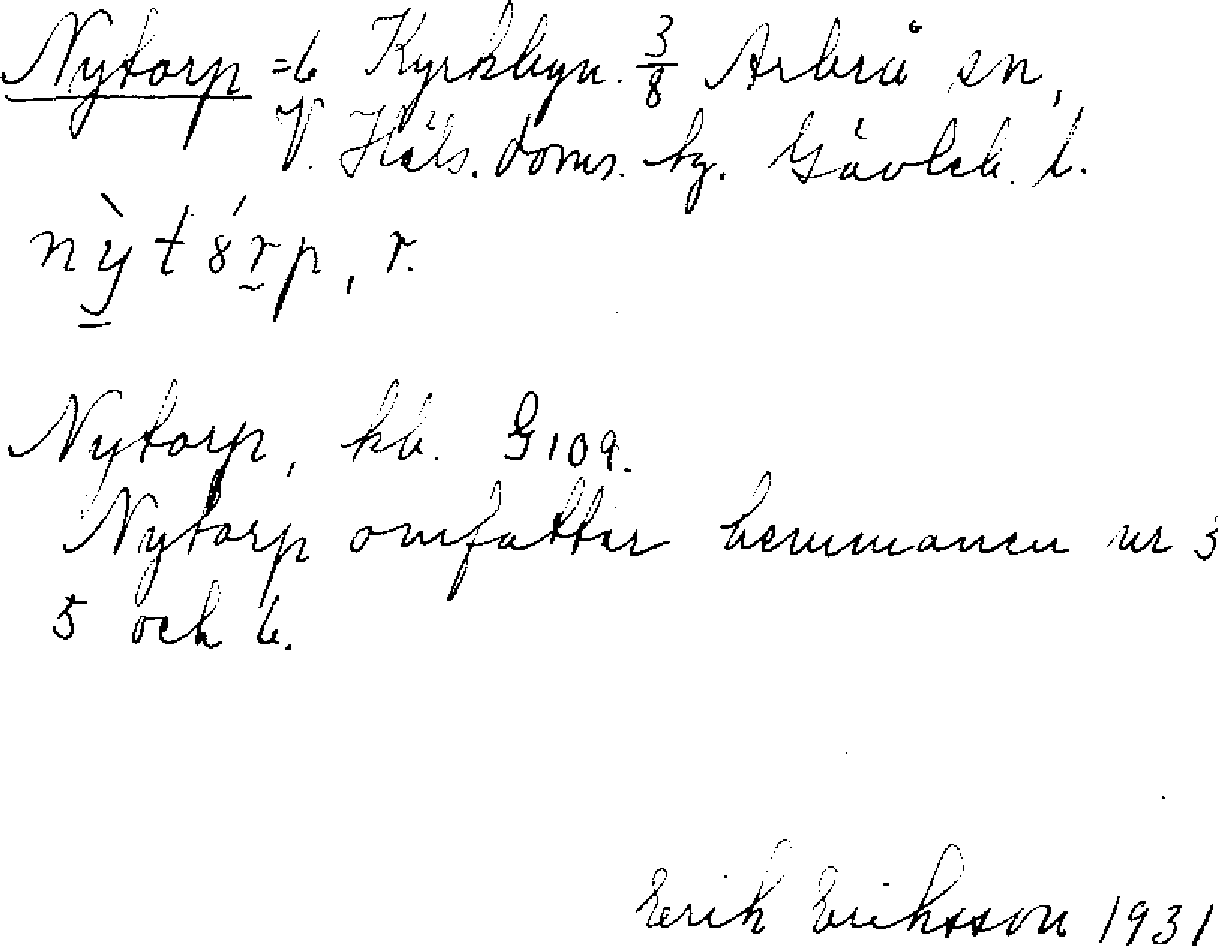 Nytorp =6 Kyrkbyn. 3/8 Arbrå sn,
V. Häls. doms. hg. Gävleb. l.
nỳtórp, r.
Nytorp, kb. G 109.
Nytorp omfattar hemmanen nr 3
5 och 6.
Erik Eriksson 1931